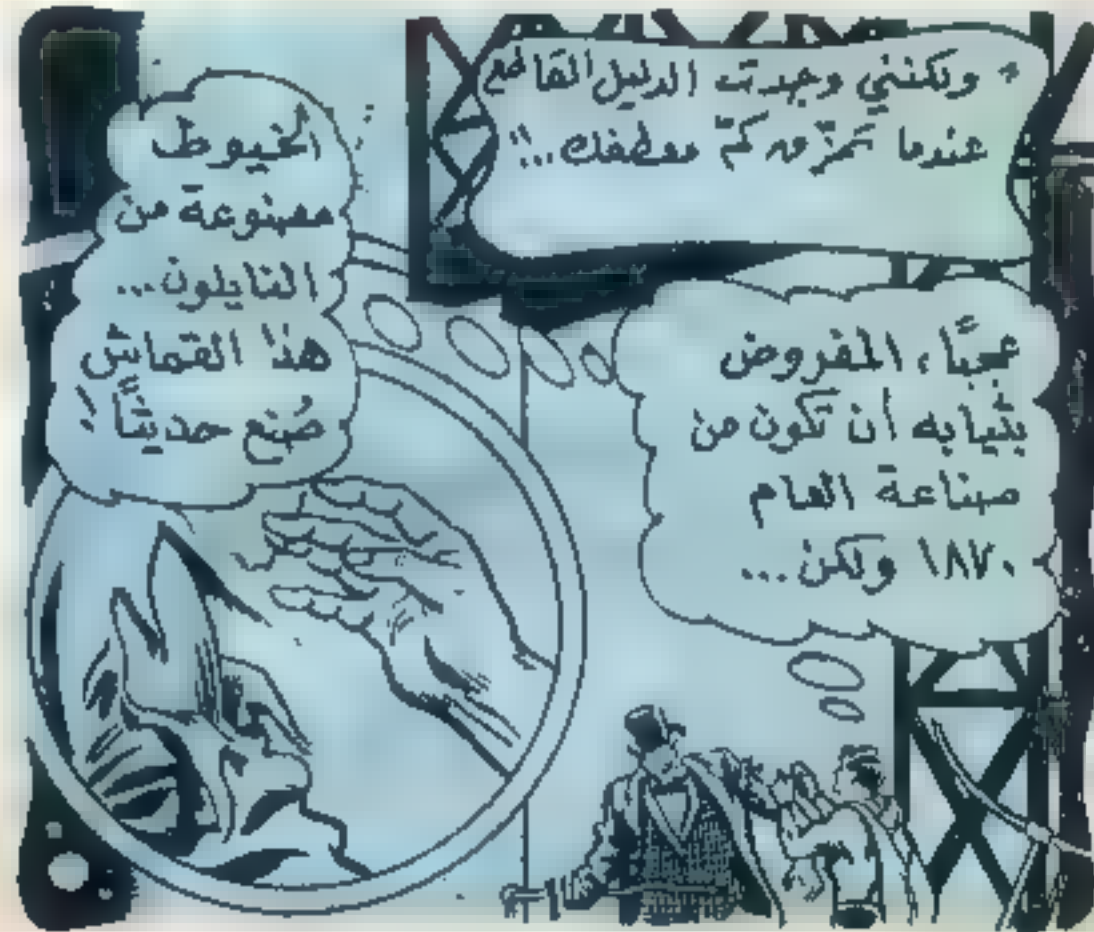 " ولكنني وجدت الدليل القاطع
عندما تمزّق كمّ معطفك..!"
عجبًا، المفروض
بثيابه أن تكون من
صناعة العام
١٨٧٠ ولكن...
الخيوط
مصنوعة من
النايلون...
هذا القماش
صُنع حديثًا!!